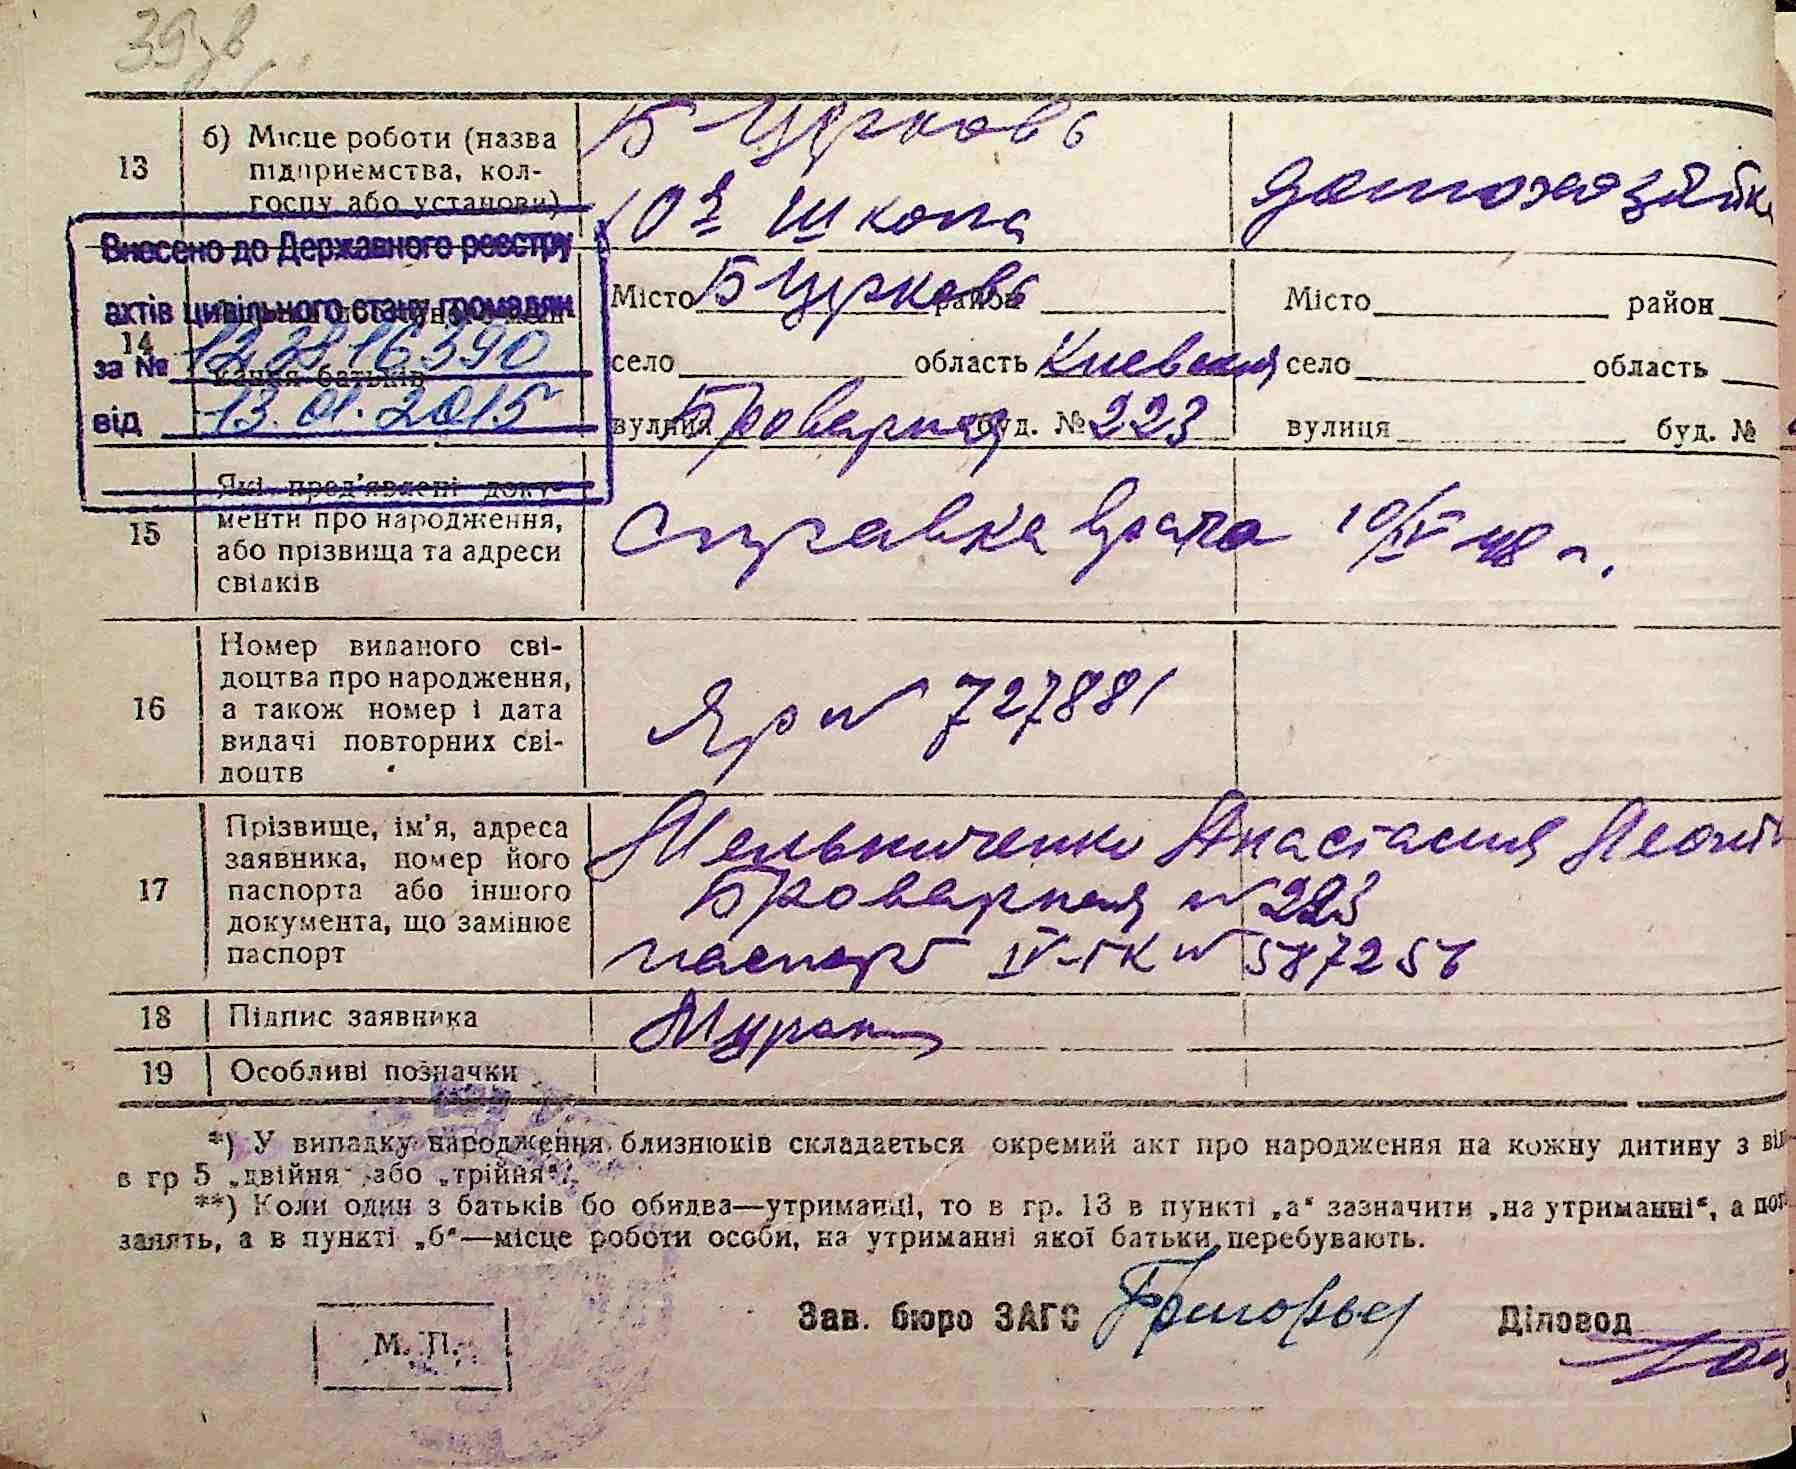 39 зв
13
б) Місце роботи (назва підприємства, колгоспу або установи)
Б Церковь
10я школа
домохазяйка
Внесено до Державного реєстру
актів цивільного стану громадян
за № 12 23 16390
від 13.01.2015
14
вання батьків
Місто Б Церковь район
село область Киевская
вулиця Броварная буд. № 223
Місто район
село область
вулиця буд. №
15
Які пред'явлені доку-
менти про народження,
або прізвища та адреси
свідків
справка врача 10/IV 48 г.
16
Номер виданого сві-
доцтва про народження,
а також номер і дата
видачі повторних сві-
доцтв
Яр № 727881
17
Прізвище, ім'я, адреса
заявника, номер його
паспорта або іншого
документа, що замінює
паспорт
Мельниченко Анастасия Леонть
Броварная № 223
паспорт IV-ГК № 587256
18 Підпис заявника
19 Особливі позначки
*) У випадку народження близнюків складається окремий акт про народження на кожну дитину з від
в гр 5 „двійня“ або „трійня“.
**) Коли один з батьків бо обидва—утриманці, то в гр. 13 в пункті „а“ зазначити „на утриманні“, а пот
занять, а в пункті „б“—місце роботи особи, на утриманні якої батьки перебувають.
М. П.
Зав. бюро ЗАГС Григорьев
Діловод